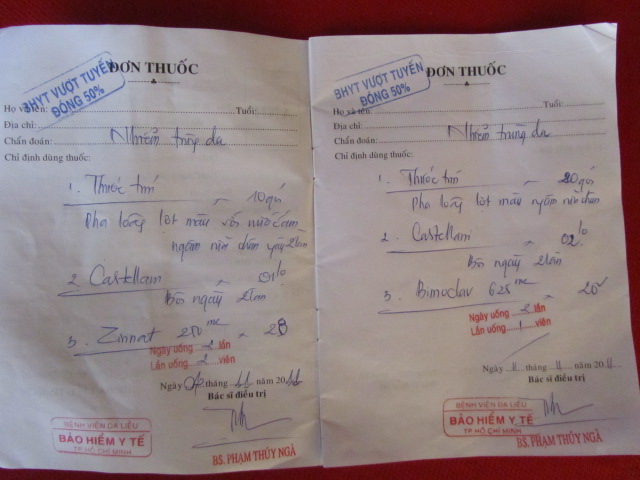 BHYT VƯỢT TUYẾN
ĐỒNG 50%
ĐƠN THUỐC
Họ và tên: Tuổi:
Địa chỉ:
Chẩn đoán: Nhiễm trùng da
Chỉ định dùng thuốc:
1. Thuốc tím 10 gói
Pha loãng lợt màu với nước ấm
ngâm nửa chân ngày 2 lần
2. Castellani 01 lọ
Bôi ngày 2 lần
3. Zinnat 250 mg 28
Ngày uống 2 lần
Lần uống 2 viên
Ngày tháng 11 năm 20
Bác sĩ điều trị
BỆNH VIỆN DA LIỄU
BẢO HIỂM Y TẾ
TP HỒ CHÍ MINH
BS. PHẠM THÚY NGÀ
BHYT VƯỢT TUYẾN
ĐỒNG 50%
ĐƠN THUỐC
Họ và tên: Tuổi:
Địa chỉ:
Chẩn đoán: Nhiễm trùng da
Chỉ định dùng thuốc:
1. Thuốc tím 20 gói
Pha loãng lợt màu ngâm nửa chân
2. Castellani 02 lọ
Bôi ngày 2 lần
3. Bimoclav 625 mg 20
Ngày uống 2 lần
Lần uống 1 viên
Ngày 11 tháng 11 năm 2011
Bác sĩ điều trị
BỆNH VIỆN DA LIỄU
BẢO HIỂM Y TẾ
TP HỒ CHÍ MINH
BS. PHẠM THÚY NGÀ